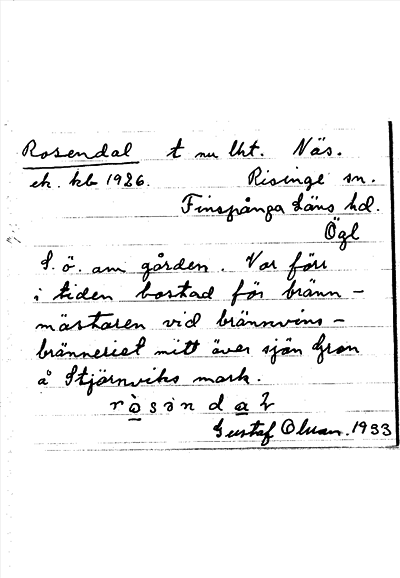 Rosendal t nu lht. Näs.
ek. kb 1926. Risinge sn.
Finspånga Läns hd.
Ögl
S. ö. om gården. Var förr
i tiden bostad för bränn-
mästaren vid brännvins-
bränneriet mitt över sjön Gron
å Stjärnviks mark.
Gustaf Olsson. 1933